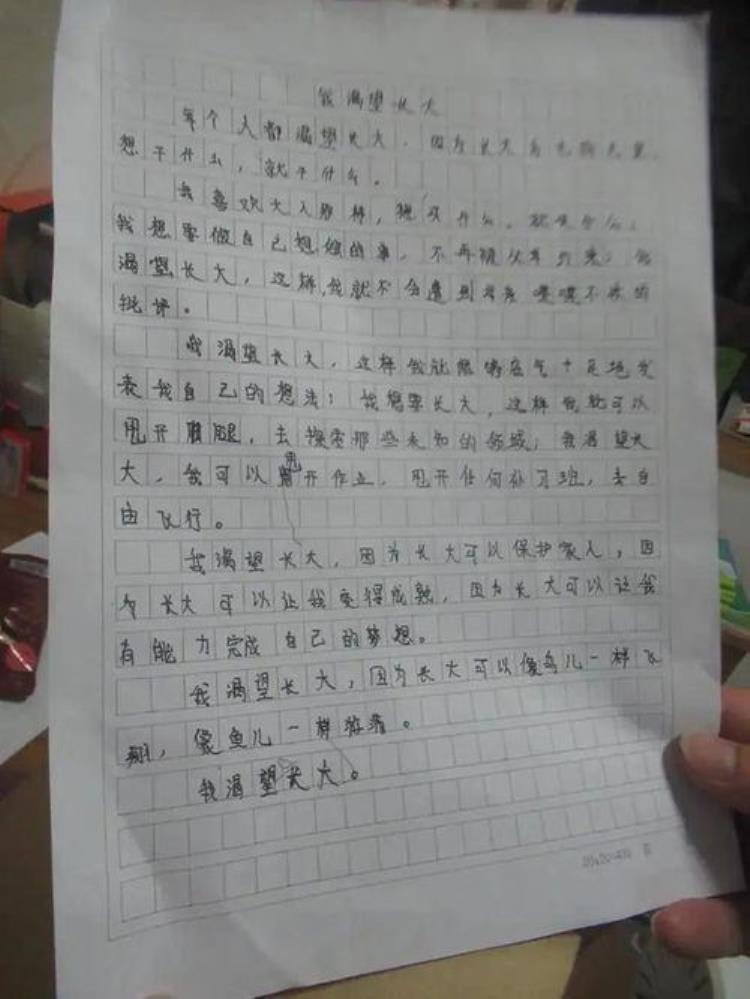 我渴望长大
每个人都渴望长大，因为长大
想干什么，就干什么。
我喜欢大人那样，想买什么，就买什么；
我想要做自己想做的事，不再被
渴望长大，这样，我就不会遭到 喋喋不休的
批评。
我渴望长大，这样我就能够底气十足地发
表我自己的想法；我想要长大，这样我就可以
甩开 腿，去探索那些未知的领域；我渴望长
大，我可以甩开作业，甩开任何补习班，去自
由飞行。
我渴望长大，因为长大可以保护家人，因
为长大可以让我变得成熟，因为长大可以让我
有能力完成自己的梦想。
我渴望长大，因为长大可以像鸟儿一样飞
翔，像鱼儿一样游
我渴望长大。